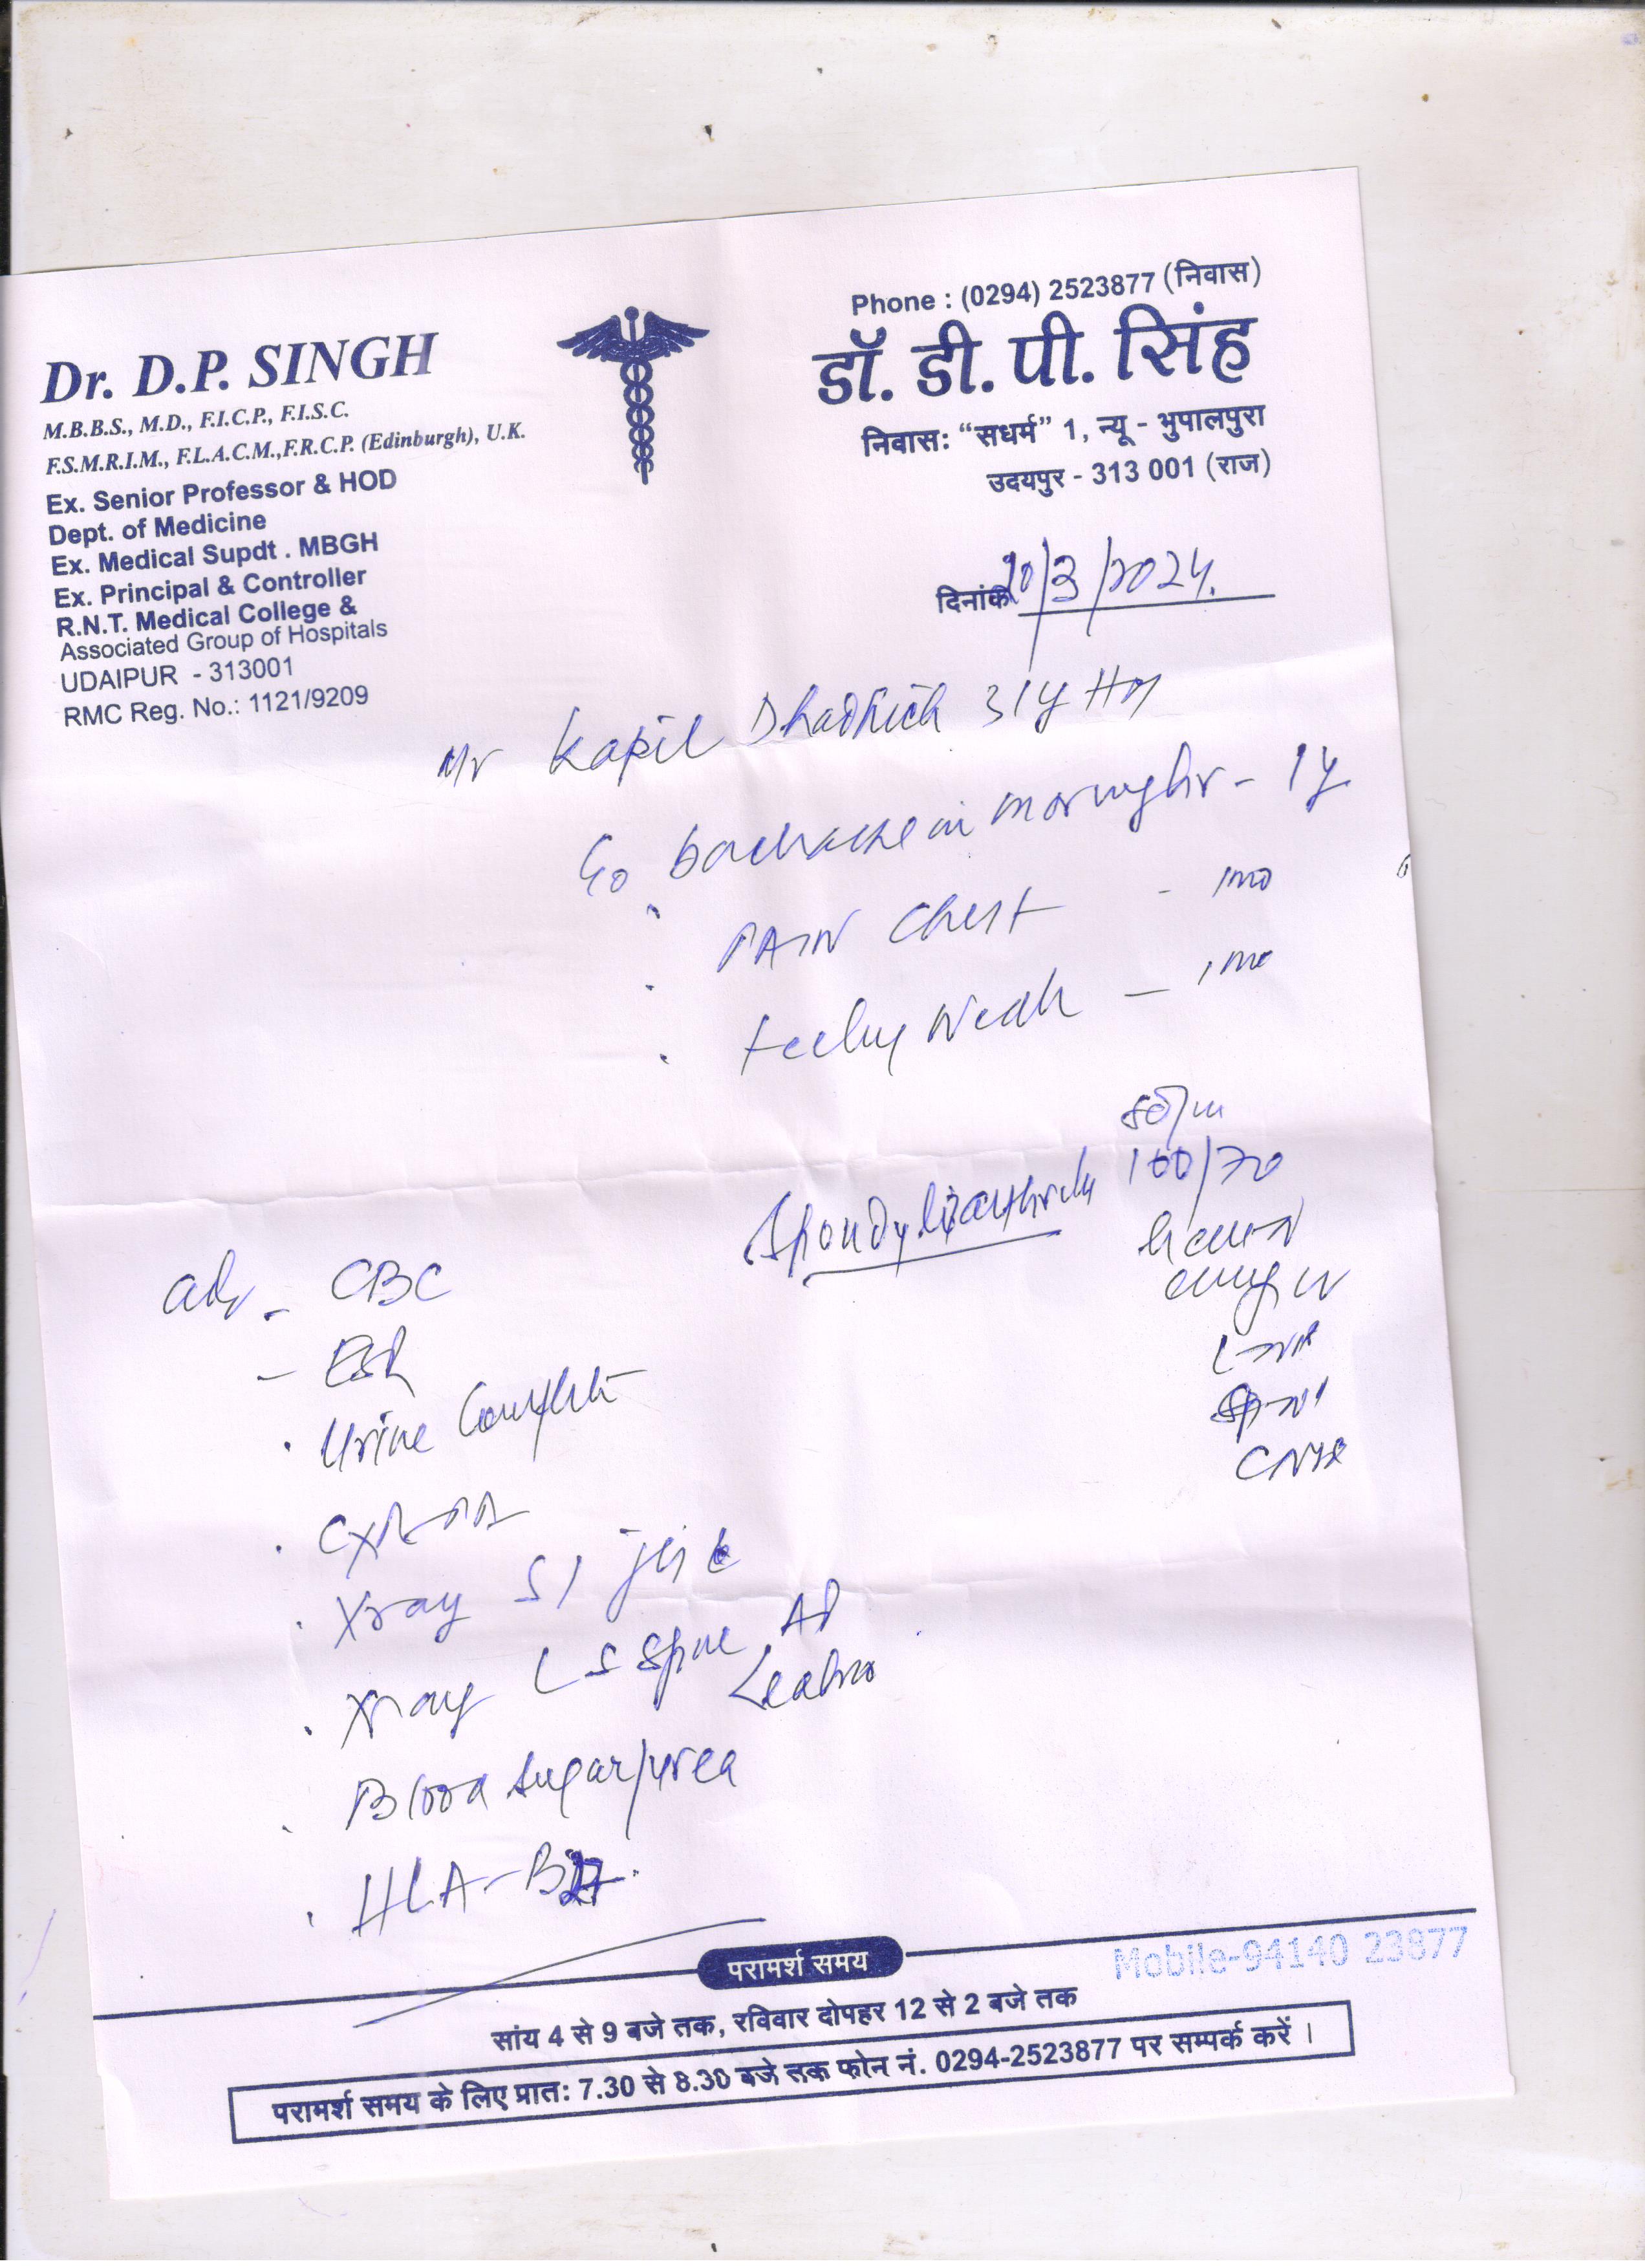 Phone : (0294) 2523877 (निवास)
Dr. D.P. SINGH
M.B.B.S., M.D., F.I.C.P., F.I.S.C.
F.S.M.R.I.M., F.L.A.C.M.,F.R.C.P. (Edinburgh), U.K.
Ex. Senior Professor & HOD
Dept. of Medicine
Ex. Medical Supdt . MBGH
Ex. Principal & Controller
R.N.T. Medical College &
Associated Group of Hospitals
UDAIPUR - 313001
RMC Reg. No.: 1121/9209
डॉ. डी. पी. सिंह
निवास: “सधर्म” 1, न्यू - भुपालपुरा
उदयपुर - 313 001 (राज)
दिनांक /3/2024.
Mr Kapil Dhadhich 31y
backache in morning hr - 1y
PAIN Chest - 1mo
Feeling Weak - 1mo
80/m
100/70
Spondyloarthritis
adv - CBC
- ESR
. Urine Complete
. CXR-PA
. Xray SI joint
. Xray LS Spine AP
Lateral
. Blood Sugar/urea
. HLA-B27.
परामर्श समय
Mobile-94140 23877
सांय 4 से 9 बजे तक, रविवार दोपहर 12 से 2 बजे तक
परामर्श समय के लिए प्रात: 7.30 से 8.30 बजे तक फोन नं. 0294-2523877 पर सम्पर्क करें ।